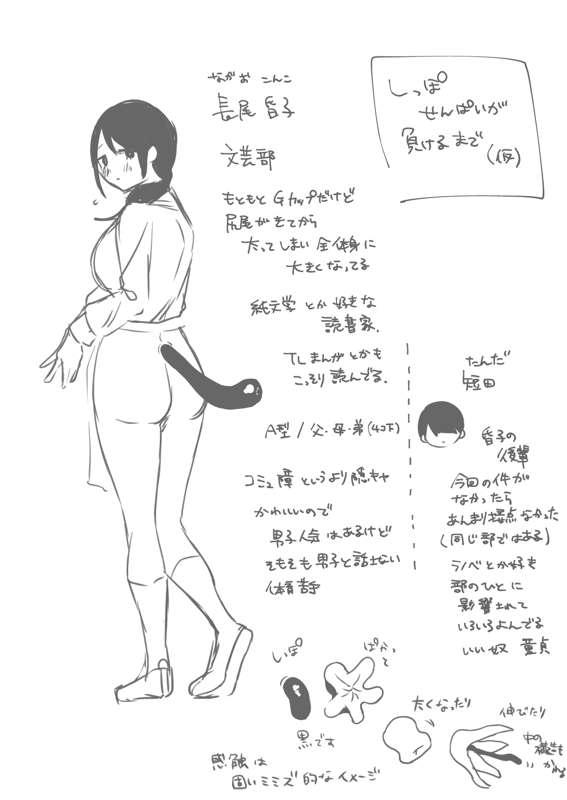 しっぽ
せんぱいが
負けるまで
(仮)
ながお こんこ
長尾 昏子
文芸部
もともと Gカップだけど
尻尾がきてから
太ってしまい 全体身に
大きくなってる
純文学 とか 好きな
読書家.
TLまんが とかも
こっそり 読んでる.
A型 / 父・母・弟(4コ下)
コミュ障 というより 陰キャ
かわいいので
男子人気はあるけど
そもそも 男子と話さない
体育苦手
たんだ
短田
昏子の
後輩
今回の件が
なかったら
あんまり接点なかった
(同じ部ではある)
ラノベとか好き
部のひとに
影響されて
いろいろよんでる
いい奴 童貞
しっぽ
ぱかって
黒です
太くなったり
伸びたり
中の
構造も
かわる
感触は
固いミミズ的なイメージ